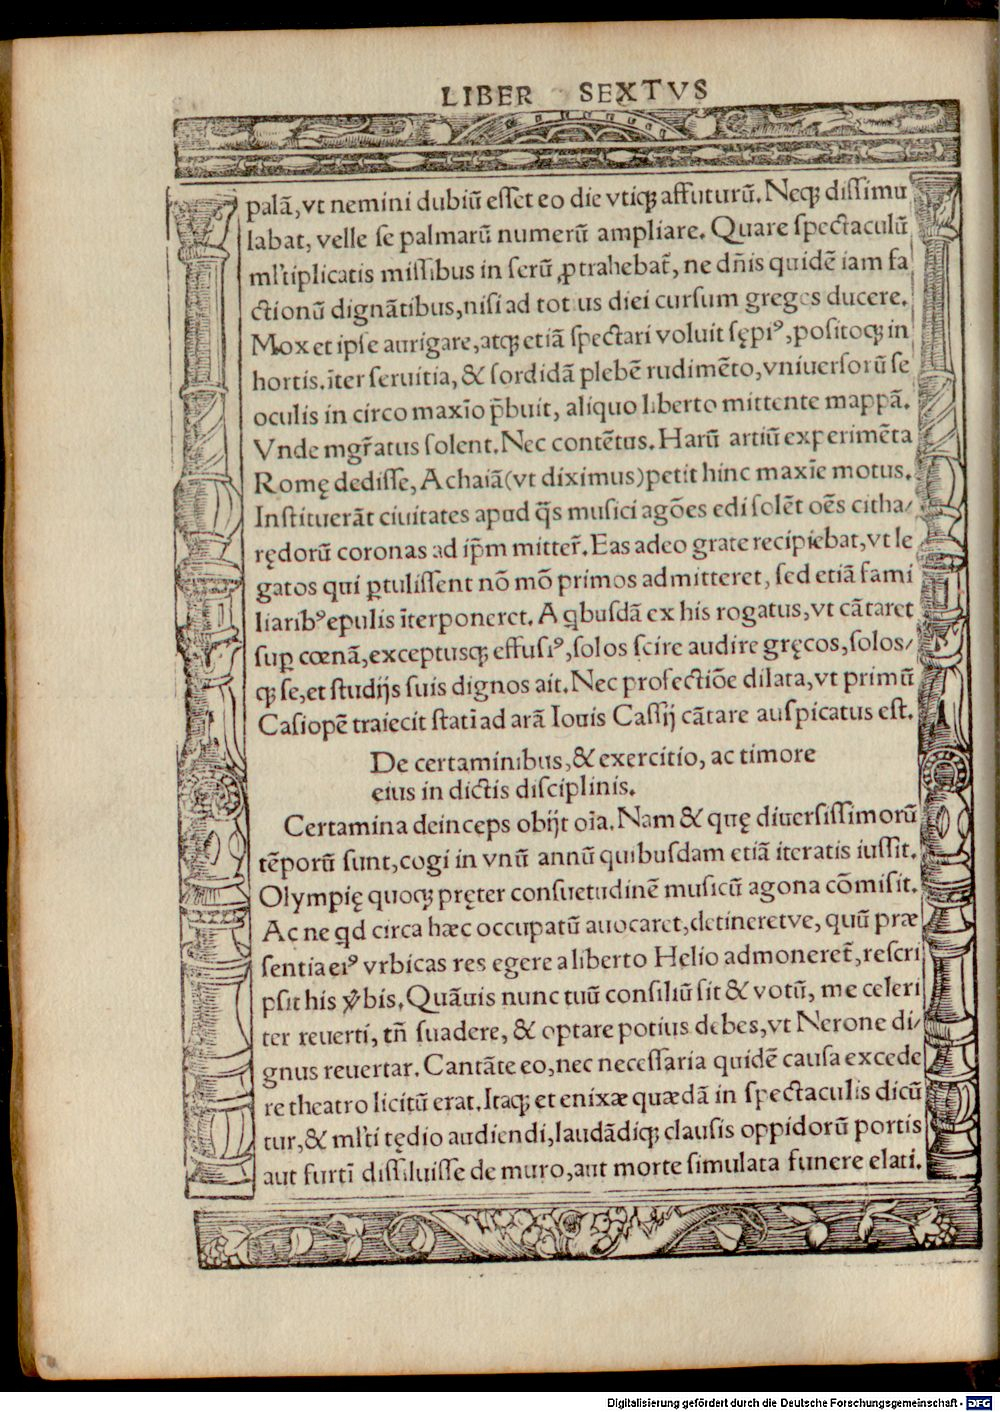 LIBER SEXTVS
palā, vt nemini dubiū esset eo die vtiqꝫ affuturū. Neqꝫ dissimu
labat, velle se palmarū numerū ampliare. Quare spectaculū
ml'tiplicatis missibus in serū ꝓtrahebat̄, ne dn̄is quidē iam fa
ctionū dignātibus, nisi ad totius diei cursum greges ducere.
Mox et ipse aurigare, atqꝫ etiā spectari voluit sępiꝰ, positoqꝫ in
hortis. īter seruitia, & sordidā plebē rudimēto, vniuersorū se
oculis in circo maxīo p̄buit, aliquo liberto mittente mappā.
Vnde mgr̄atus solent. Nec contētus. Harū artiū experimēta
Romę dedisse, Achaiā (vt diximus) petit hinc maxīe motus.
Instituerāt ciuitates apud q̄s musici agōes edi solēt oēs citha/
rędorū coronas ad ip̄m mitter̄. Eas adeo grate recipiebat, vt le
gatos qui ꝑtulissent nō mō primos admitteret, sed etiā fami
liaribꝰ epulis īterponeret. A qbusdā ex his rogatus, vt cātaret
suꝑ cœnā, exceptusqꝫ effusiꝰ, solos scire audire gręcos, solos/
qꝫ se, et studijs suis dignos ait. Nec profectiōe dilata, vt primū
Casiopē traiecit statī ad arā Iouis Cassij cātare auspicatus est.
De certaminibus, & exercitio, ac timore
eius in dictis disciplinis.
Certamina deinceps obijt oīa. Nam & quę diuersissimorū
tēporū sunt, cogi in vnū annū quibusdam etiā iteratis iussit.
Olympię quoqꝫ pręter consuetudinē musicū agona cōmisit.
Ac ne qd circa hæc occupatū auocaret, detineretve, quū præ
sentia eiꝰ vrbicas res egere a liberto Helio admoneret̄, rescri
psit his v̄bis. Quāuis nunc tuū consiliū sit & votū, me celeri
ter reuerti, tn̄ suadere, & optare potius debes, vt Nerone di/
gnus reuertar. Cantāte eo, nec necessaria quidē causa excede
re theatro licitū erat. Itaqꝫ et enixæ quædā in spectaculis dicū
tur, & ml'ti tędio audiendi, laudādiqꝫ clausis oppidorū portis
aut furtī dissiluisse de muro, aut morte simulata funere elati.
Digitalisierung gefördert durch die Deutsche Forschungsgemeinschaft - DFG